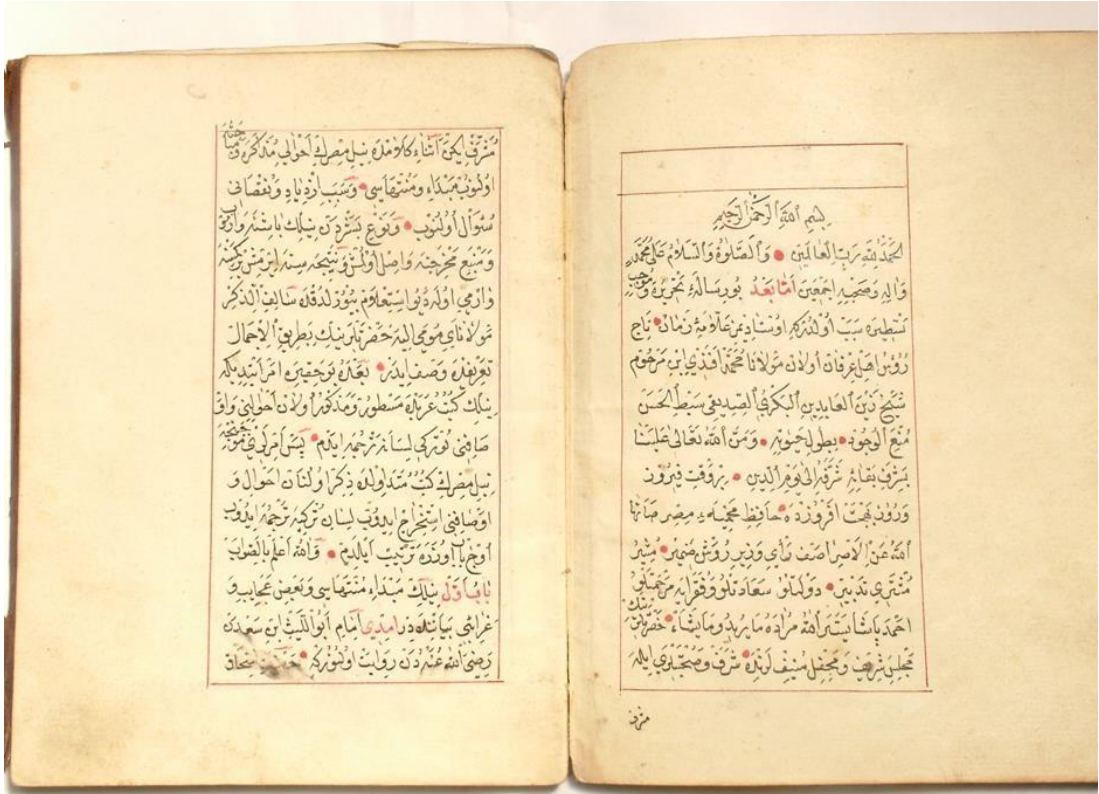 بسم الله الرحمن الرحيم
الحمد لله رب العالمين والصلوة والسلام على محمد
واله وصحبه اجمعين اما بعد بو رسالهء تحريره و موجب
تسطيره سبب اولدركه اوستاذيمز علامهٔ زمان تاج
رؤس اهل عرفان اولان مولانا محمد افندي ابن مرحوم
شيخ زين العابدين البكري الصديقي سبط الحسن
متع الوجود بطول حيوته ومن الله تعالى علينا
بشرف بقائه شرفه الى يوم الدين بر وقت فيروز
و روز بهجت افروزده حافظ محميهء مصر صانها
الله عن الاصر اصف رأي وزير روشن ضمير مشير
مشتري تدبير دولتلو سعادتلو وفقرايه مرحمتلو
احمد پاشا يسر الله مراده ما يريد وما يشاء حضرتلرينك
مجلس شريف ومحفل منيف لرنده شرف صحبتلري ايله
مشرف
مشرف ايكن اثناء كلامده نيل مصرك احوالي مذاكره
اولنوب مبداء ومنتهاسي وسبب ازدياد ونقصانى
سئوال اولنوب ونوع بشردن نيلك باشنه وارب
ومنبع مخرجنه واصل اولمش ونتيجه سنه ايرمش بر كمسنه
وارمي اوله ديو استعلام بيورلدقده سالف الذكر
مولاناي مومى اليه حضرتلري نيلك بطريق الاجمال
تعريفده وصف ايدر بعده بو حقيره امر ايتديكه
نيلك كتب عربيه ده مسطور ومذكور اولان احوالنى واو
صافنى توركي لسانه ترجمه ايدم پس امرلري موجبنجه
نيل مصرك كتب متداوله ده ذكر اولنان احوال و
اوصافنى استخراج ايدوب لسان تركيه ترجمه ايدوب
اوچ باب اوزره ترتيب ايلدم والله اعلم بالصواب
باب اول نيلك مبداء منتهاسي وبعض عجايب و
غرائبى بياننده در امدي امام ابو الليث ابن سعددن
رضي الله عنه دن روايت اولنوركه اسحاق